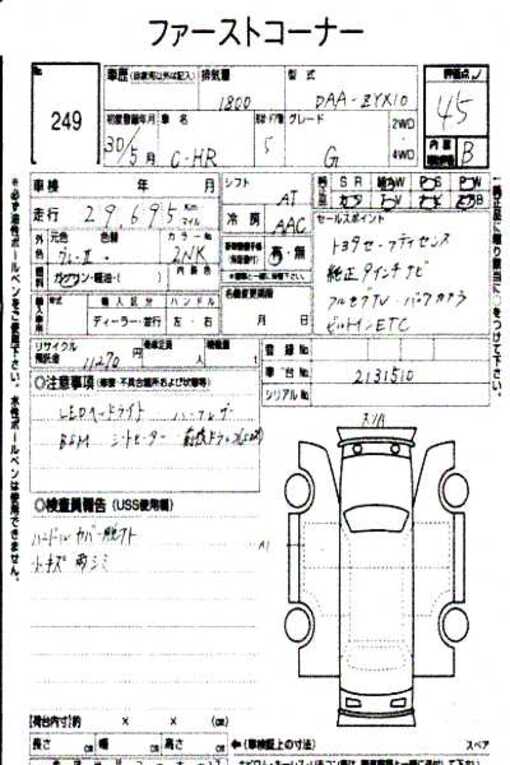 ファーストコーナー
No.
249
車歴 (自家用以外は記入)
排気量
1800
型式
DAA-ZYX10
評価点
45
初度登録年月
30/5月
車名
C-HR
ドア数
5
グレード
G
2WD
4WD
内装
B
車検 年 月
走行 29,695 Km マイル
シフト
AT
冷房
AAC
SR
AW
PS
PW
TV
セールスポイント
トヨタセーフティセンス
純正9インチナビ
フルセグTV・バックカメラ
ビルトインETC
外色
元色
色替
カラーNo
2NK
内装色
燃料
ガソリン・軽油・( )
有・無
名義変更期限
月 日
輸入車用
年式
輸入区分
ハンドル
ディーラー・並行
左・右
リサイクル預託金
11270円
乗車定員
人
積載量
t
登録No.
車台No.
2131510
シリアルNo.
◎注意事項(修復・不具合箇所および状態等)
LEDヘッドライト ハーフレザー
BSM シートヒーター
◎検査員報告(USS使用欄)
ハンドル カバー脱フト
小キズ 雨シミ
A1
[荷台内寸]約 × × (cm)
長さ cm 幅 cm 高さ cm
←(車検証上の寸法)
スペア
※必ず油性ボールペンをご使用下さい。水性ボールペンは使用できません。